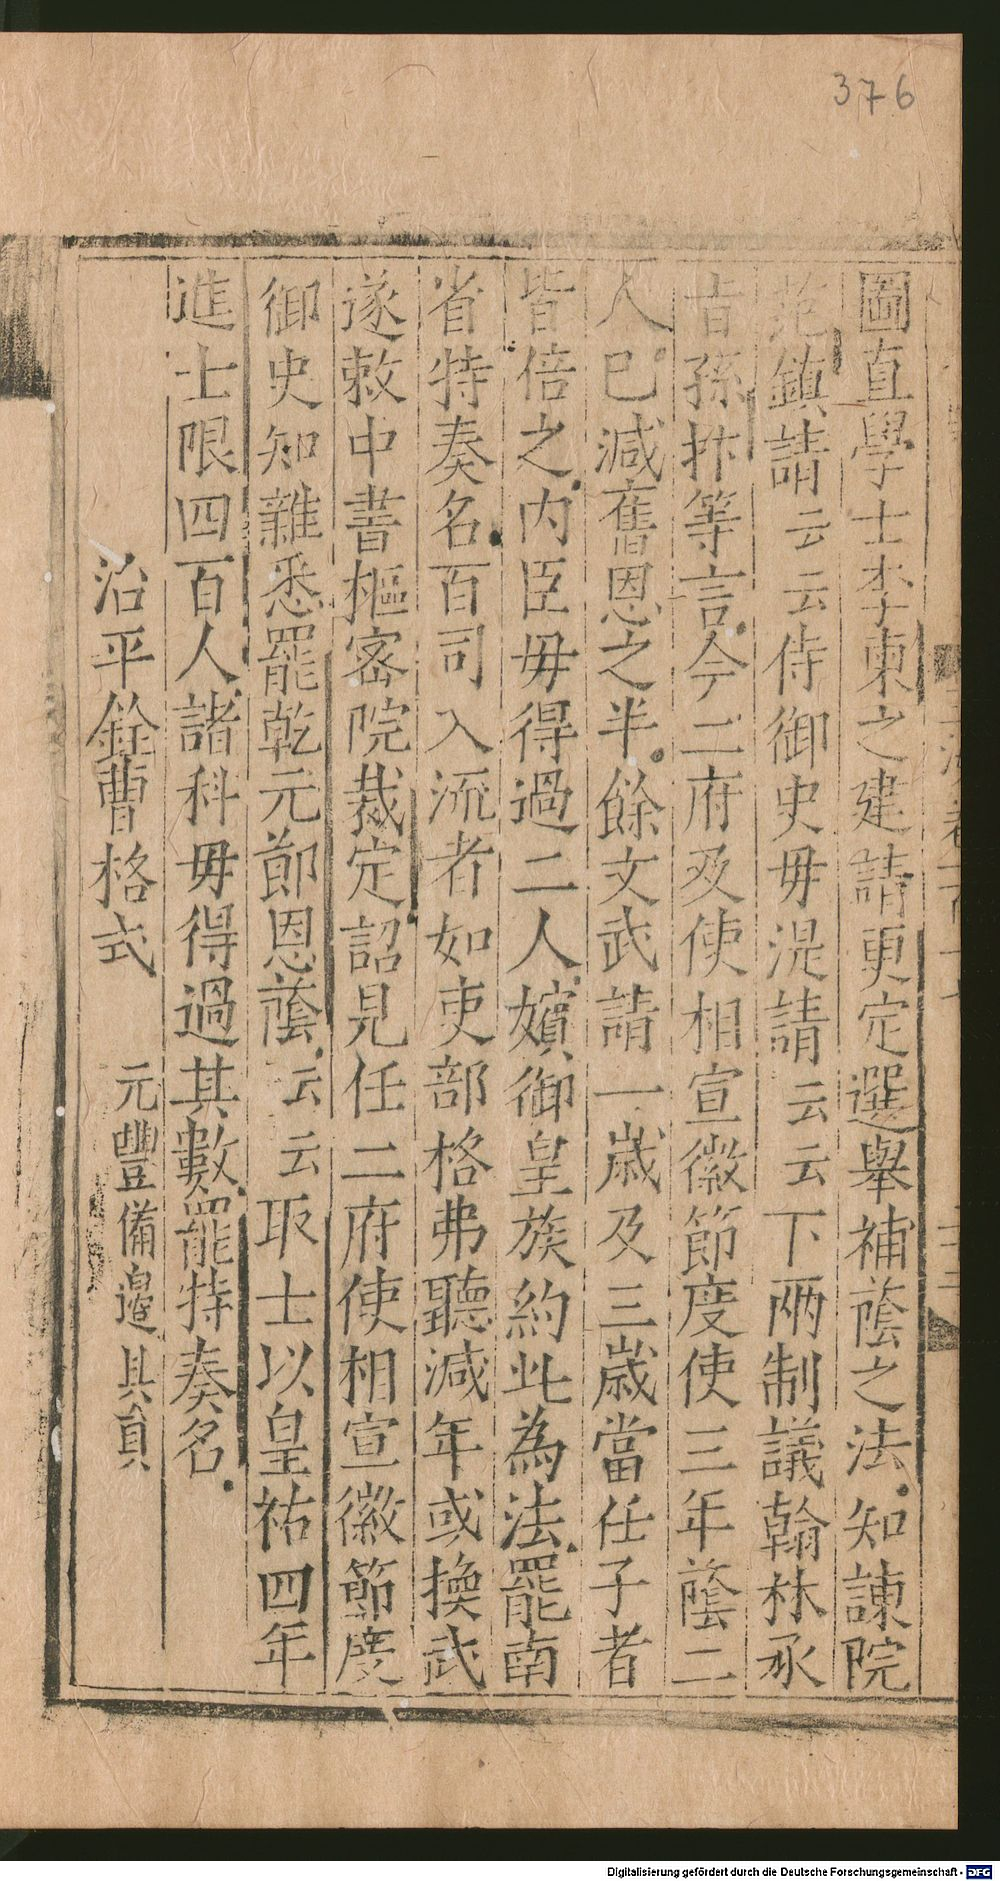 376
圖直學士李柬之建請更定選舉補蔭之法知諫院
范鎮請云云侍御史毋湜請云云下兩制議翰林承
旨孫抃等言今二府及使相宣徽節度使三年蔭二
人已減舊恩之半餘文武請一歲及三歲當任子者
皆倍之内臣毋得過二人嬪御皇族約此為法罷南
省特奏名百司入流者如吏部格弗聽減年或換武
遂敕中書樞密院裁定詔見任二府使相宣徽節度
御史知雜悉罷乾元節恩蔭云云取士以皇祐四年
進士限四百人諸科毋得過其數罷特奏名
治平銓曹格式 元豐備邊具員
Digitalisierung gefördert durch die Deutsche Forschungsgemeinschaft - DFG